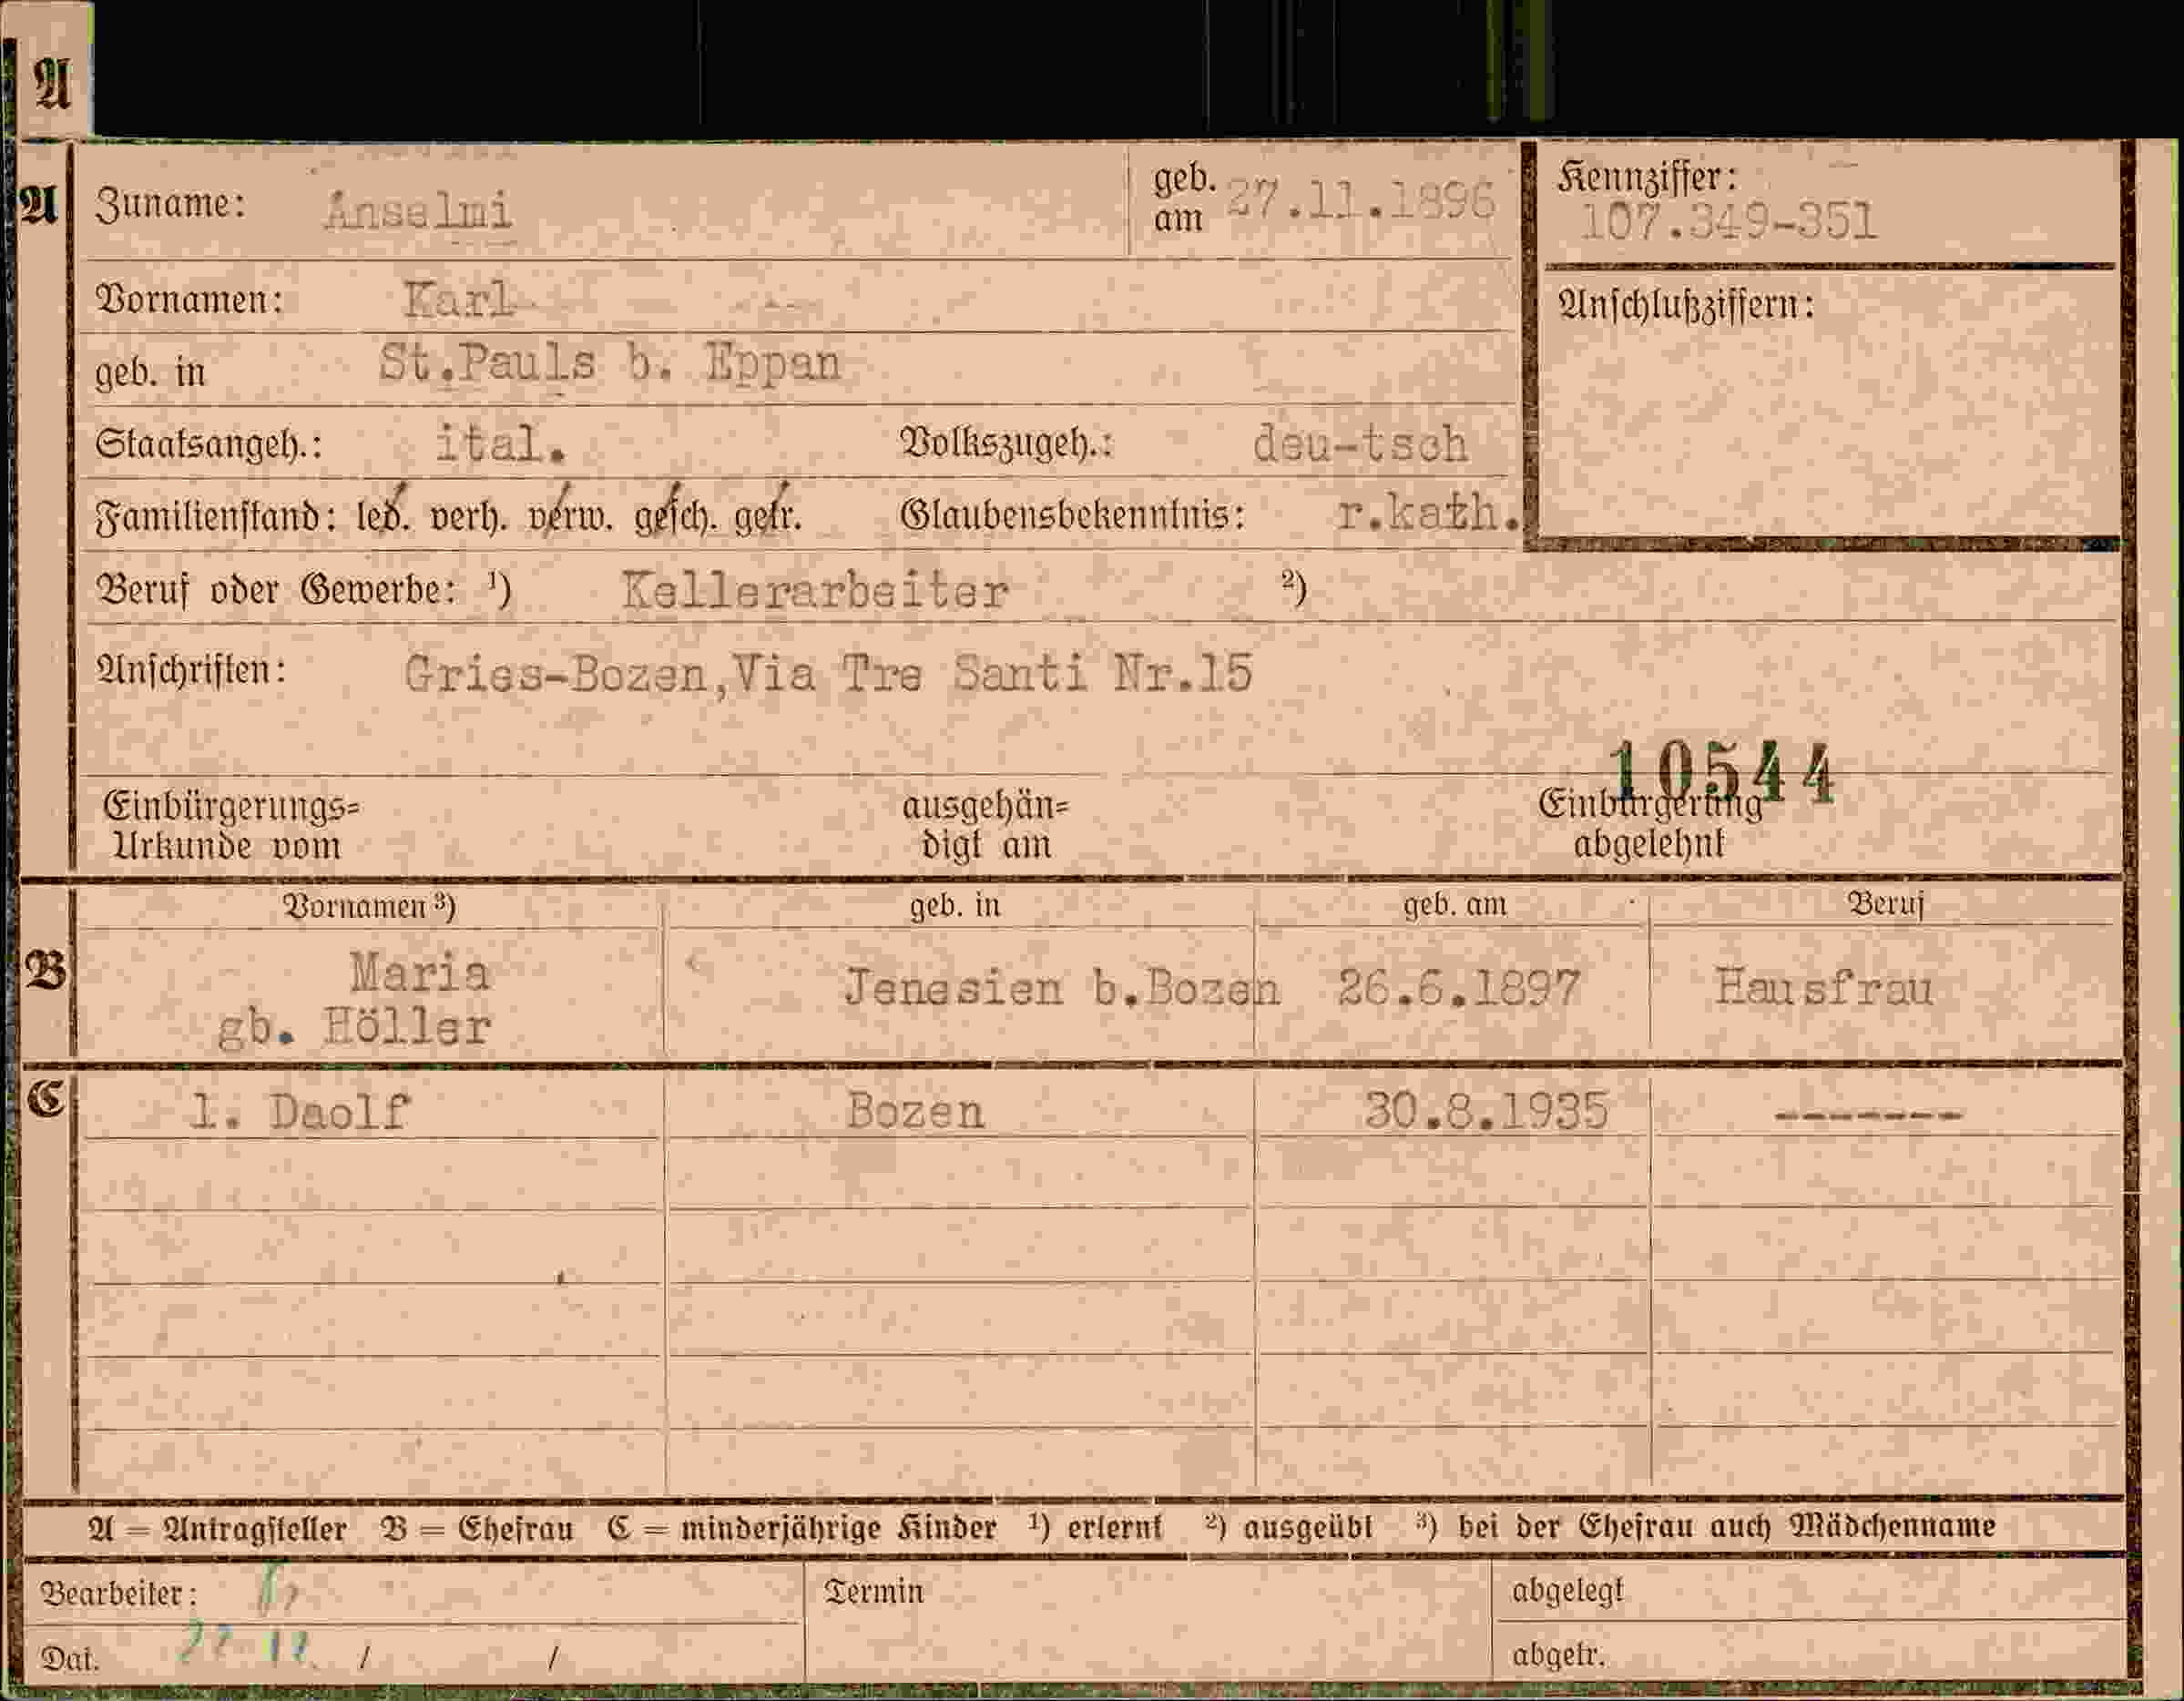 A
A Zuname: Anselmi geb. am 27.11.1896 Kennziffer: 107.349-351
Vornamen: Karl Anschlußziffern:
geb. in St.Pauls b. Eppan
Staatsangeh.: ital. Volkszugeh.: deu-tsch
Familienstand: led. verh. verw. gesch. getr. Glaubensbekenntnis: r.kath.
Beruf oder Gewerbe: 1) Kellerarbeiter 2)
Anschriften: Gries-Bozen,Via Tre Santi Nr.15
10544
Einbürgerungs= ausgehän= Einbürgerung
Urkunde vom digt am abgelehnt
Vornamen 3) geb. in geb. am Beruf
B Maria Jenesien b.Bozen 26.6.1897 Hausfrau
gb. Höller
C 1. Daolf Bozen 30.8.1935 -------
A = Antragsteller B = Ehefrau C = minderjährige Kinder 1) erlernt 2) ausgeübt 3) bei der Ehefrau auch Mädchenname
Bearbeiter: Termin abgelegt
Dat. / / abgetr.